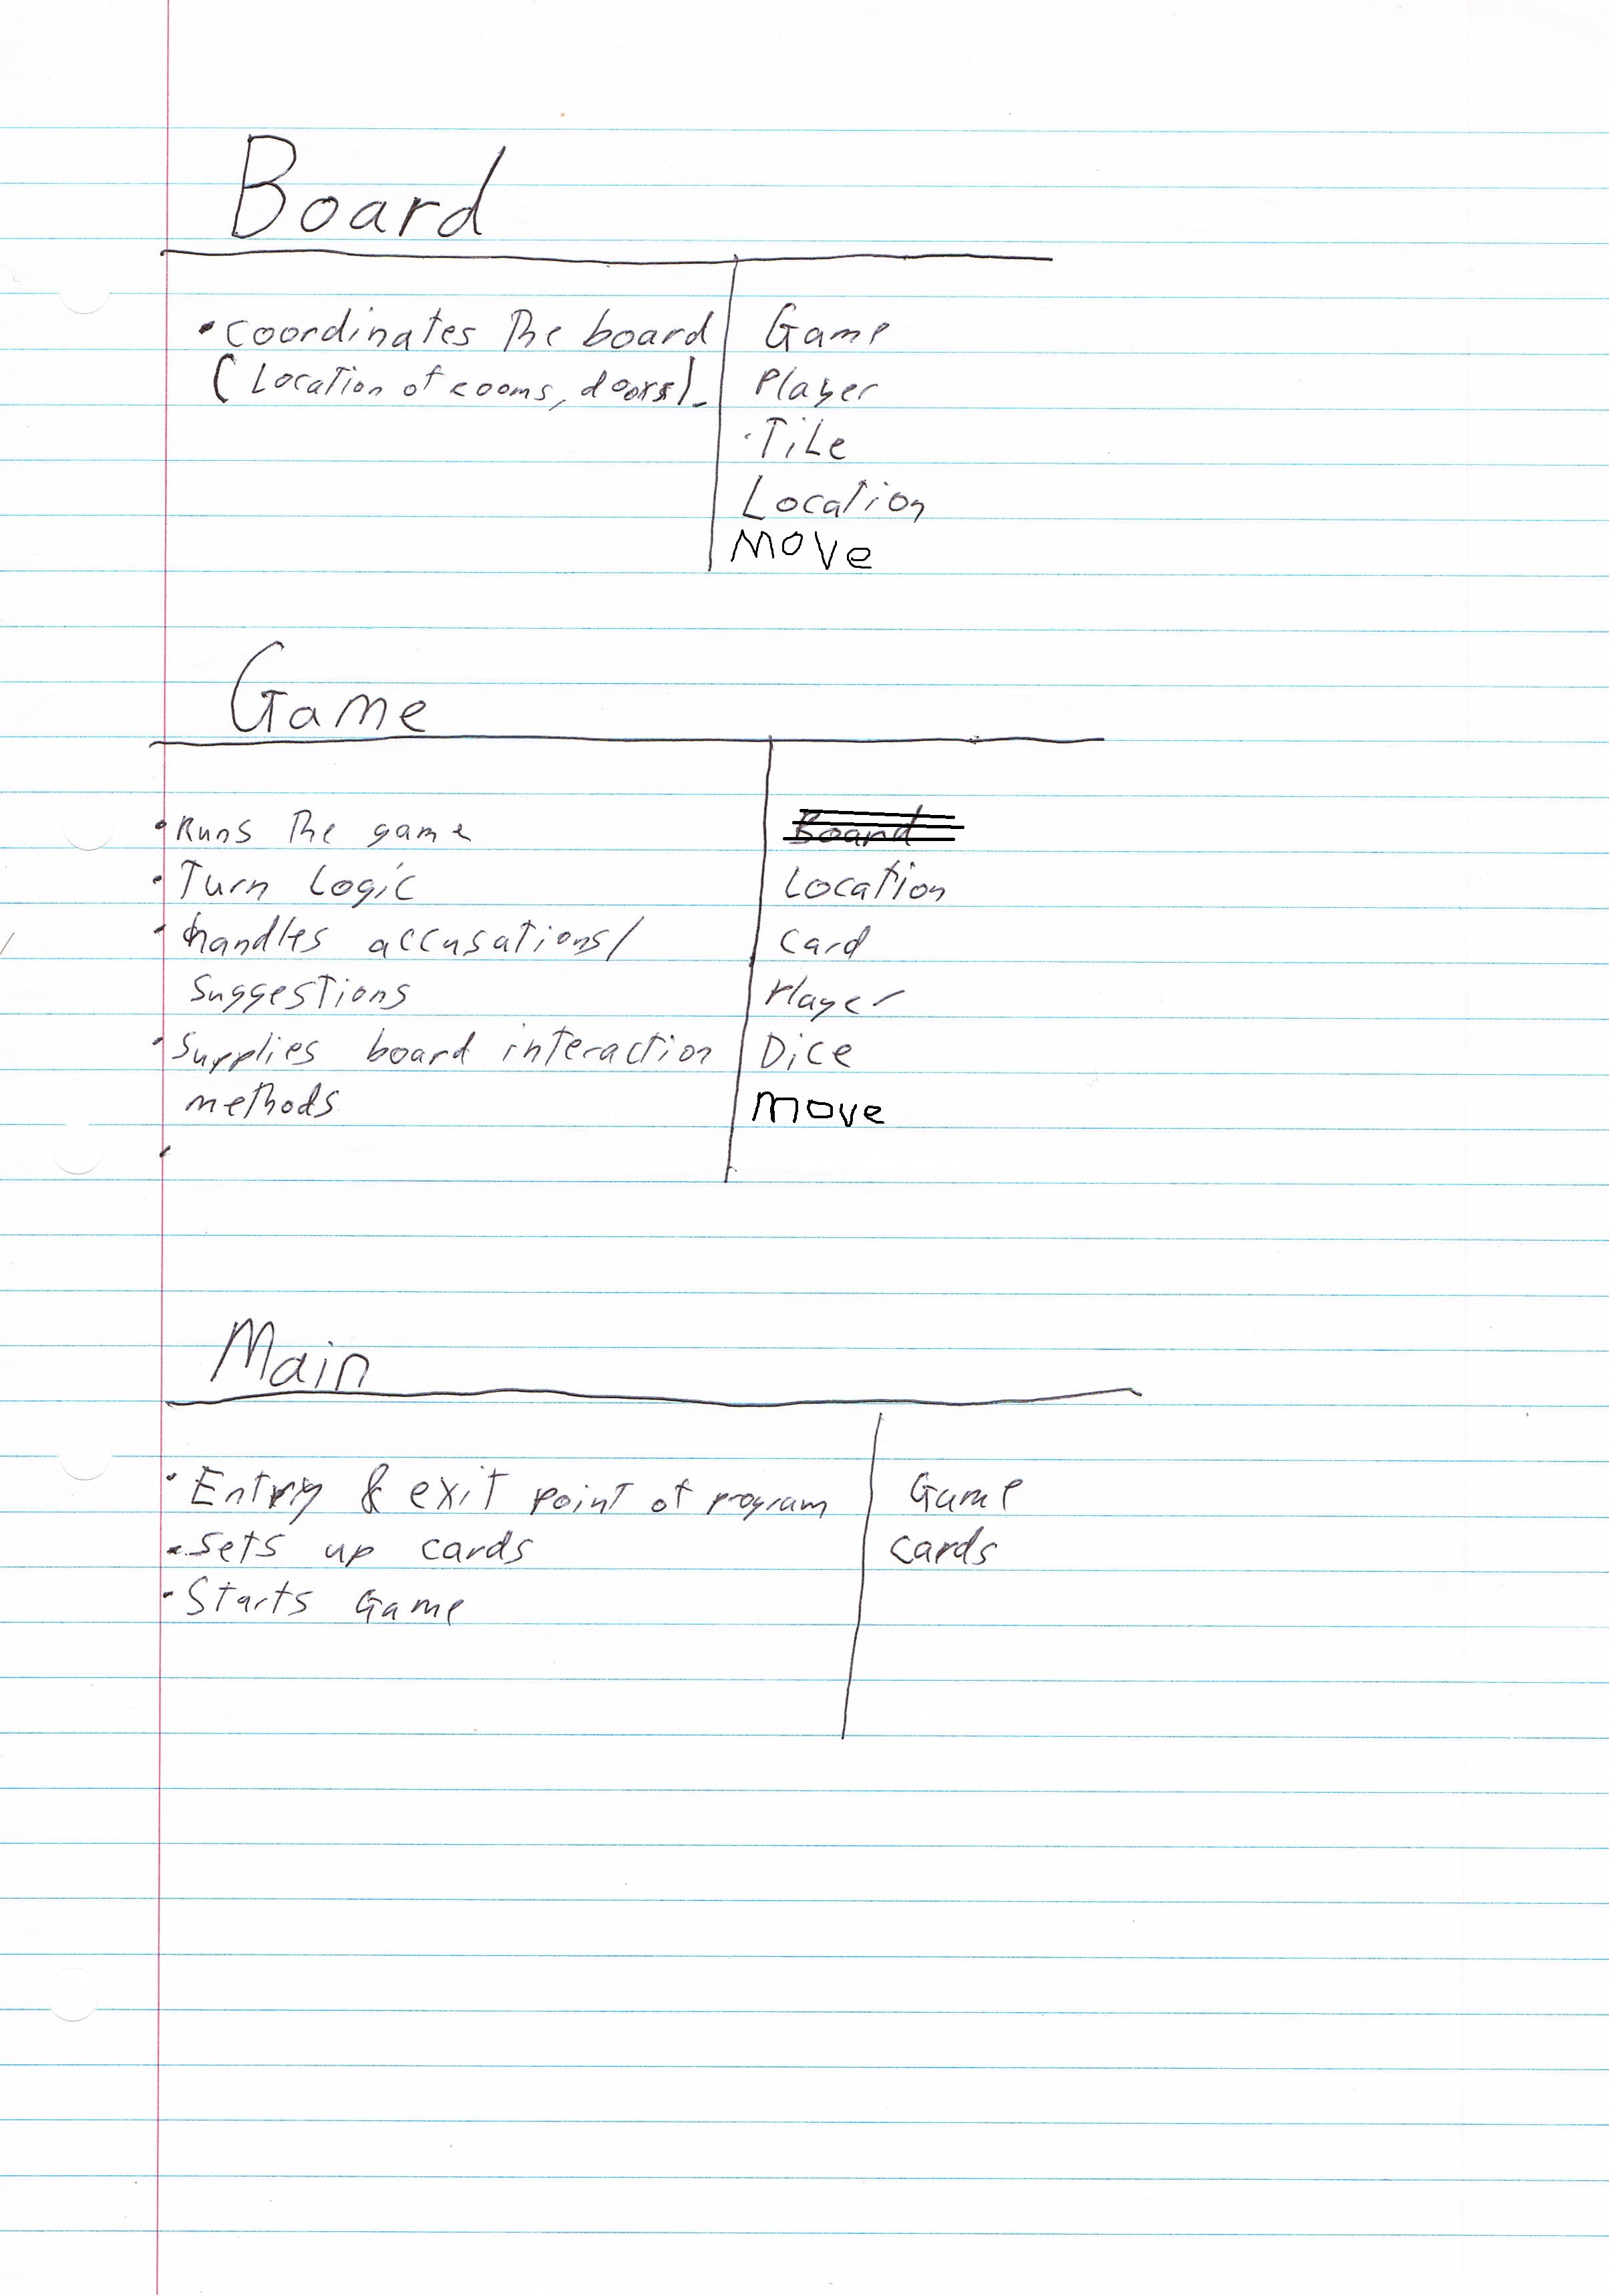 Board
• coordinates The board
(Location of rooms, doors).
Game
Player
Tile
Location
Move
Game
• Runs The game
• Turn Logic
• handles accusations/
suggestions
• Supplies board interaction
methods
•
Board
Location
Card
Player
Dice
Move
Main
• Entry & exit point of program
• Sets up cards
• Starts Game
Game
Cards